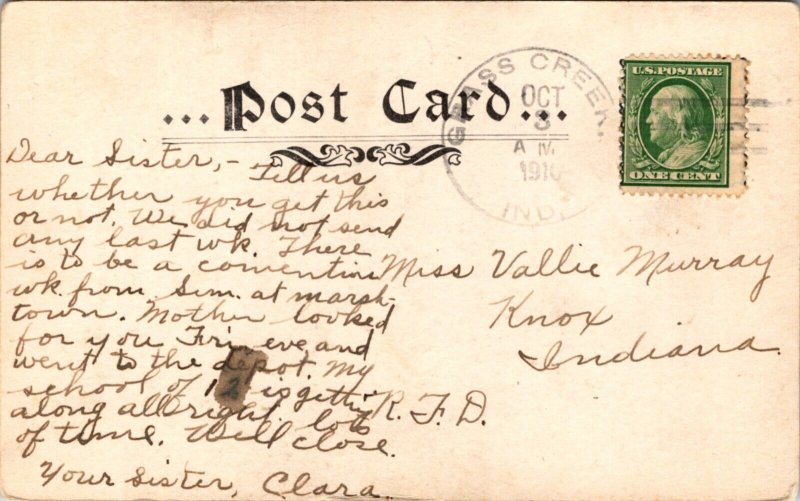 ...Post Card...
GRASS CREEK.
OCT
3
A M
1910
IND.
U.S. POSTAGE
ONE CENT
Dear Sister,- Tell us
whether you get this
or not. We did not send
any last wk. There
is to be a convention
wk. from Sun. at marsh-
town. Mother looked
for you Fri. eve and
went to the depot. My
school of 12 is getting
along allright, lots
of time. Will close.
Your Sister, Clara.
Miss Vallie Murray
Knox
Indiana.
R. F. D.